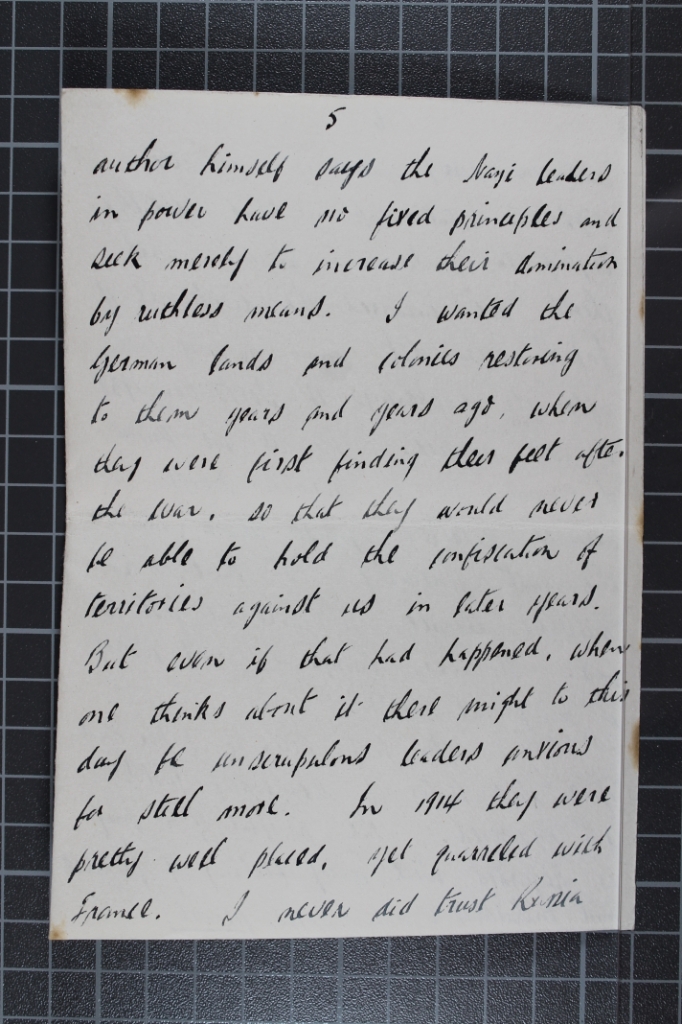 5
author himself says the Nazi leaders
in power have no fixed principles and
seek merely to increase their domination
by ruthless means. I wanted the
German lands and colonies restoring
to them years and years ago, when
they were first finding their feet after
the war, so that they would never
be able to hold the confiscation of
territories against us in later years.
But even if that had happened, when
one thinks about it there might to this
day be unscrupulous leaders anxious
for still more. In 1914 they were
pretty well placed, yet quarreled with
France. I never did trust Russia